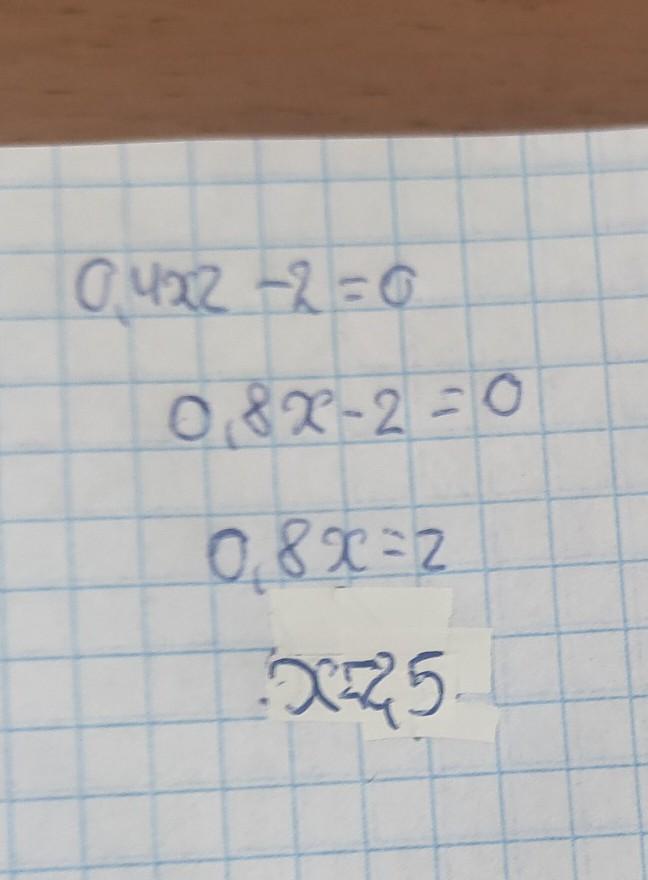 0,4x2 -2=0
0,8x-2=0
0,8x=2
x=2,5